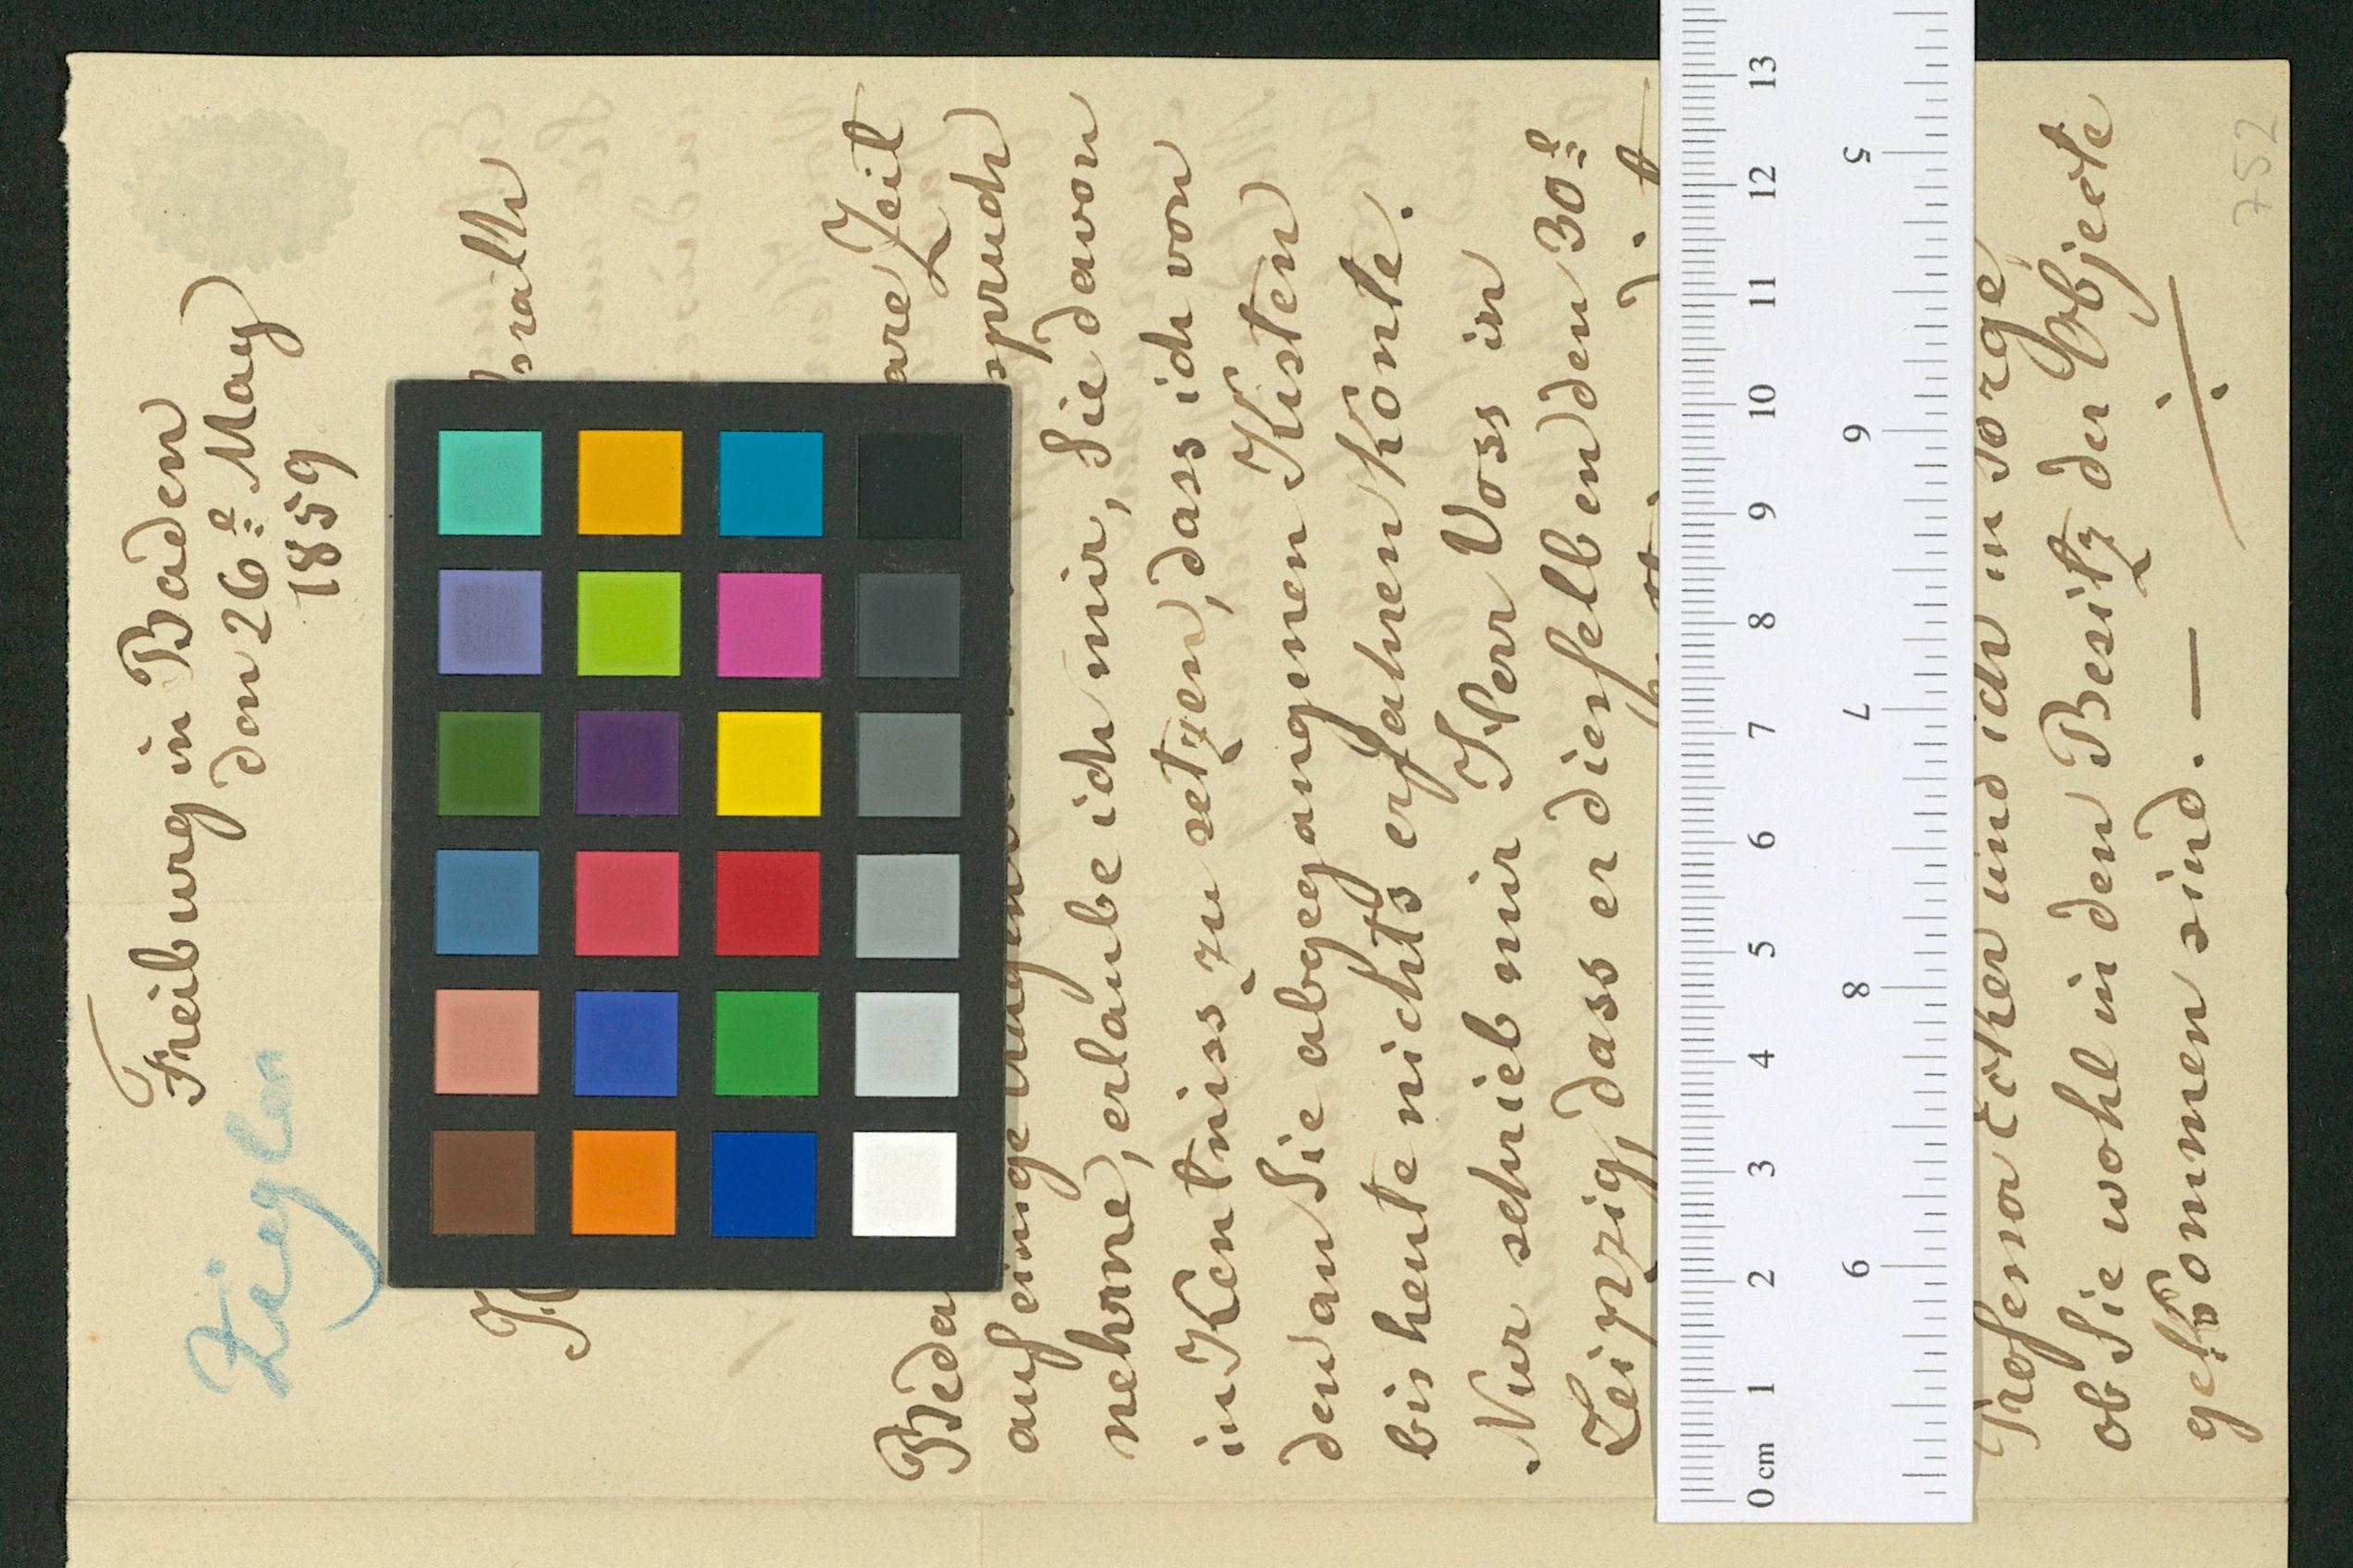 Ziegler
Freiburg in Baden
den 26e May
1859
Beda
are Zeit
auf einige
spruch
nehme, erlaube ich mir, Sie davon
in Kentniss zu setzen, dass ich von
den an Sie abgegangenen Kisten
bis heute nichts erfahren konte.
Nur schrieb mir Herr Voss in
Leipzig, dass er dieselben den 30e
ob Sie wohl in den Besitz der Objecte
gekommen sind. —
und ich in sorge
752
0 cm 1 2 3 4 5 6 7 8 9 10 11 12 13
5 6 7 8 9